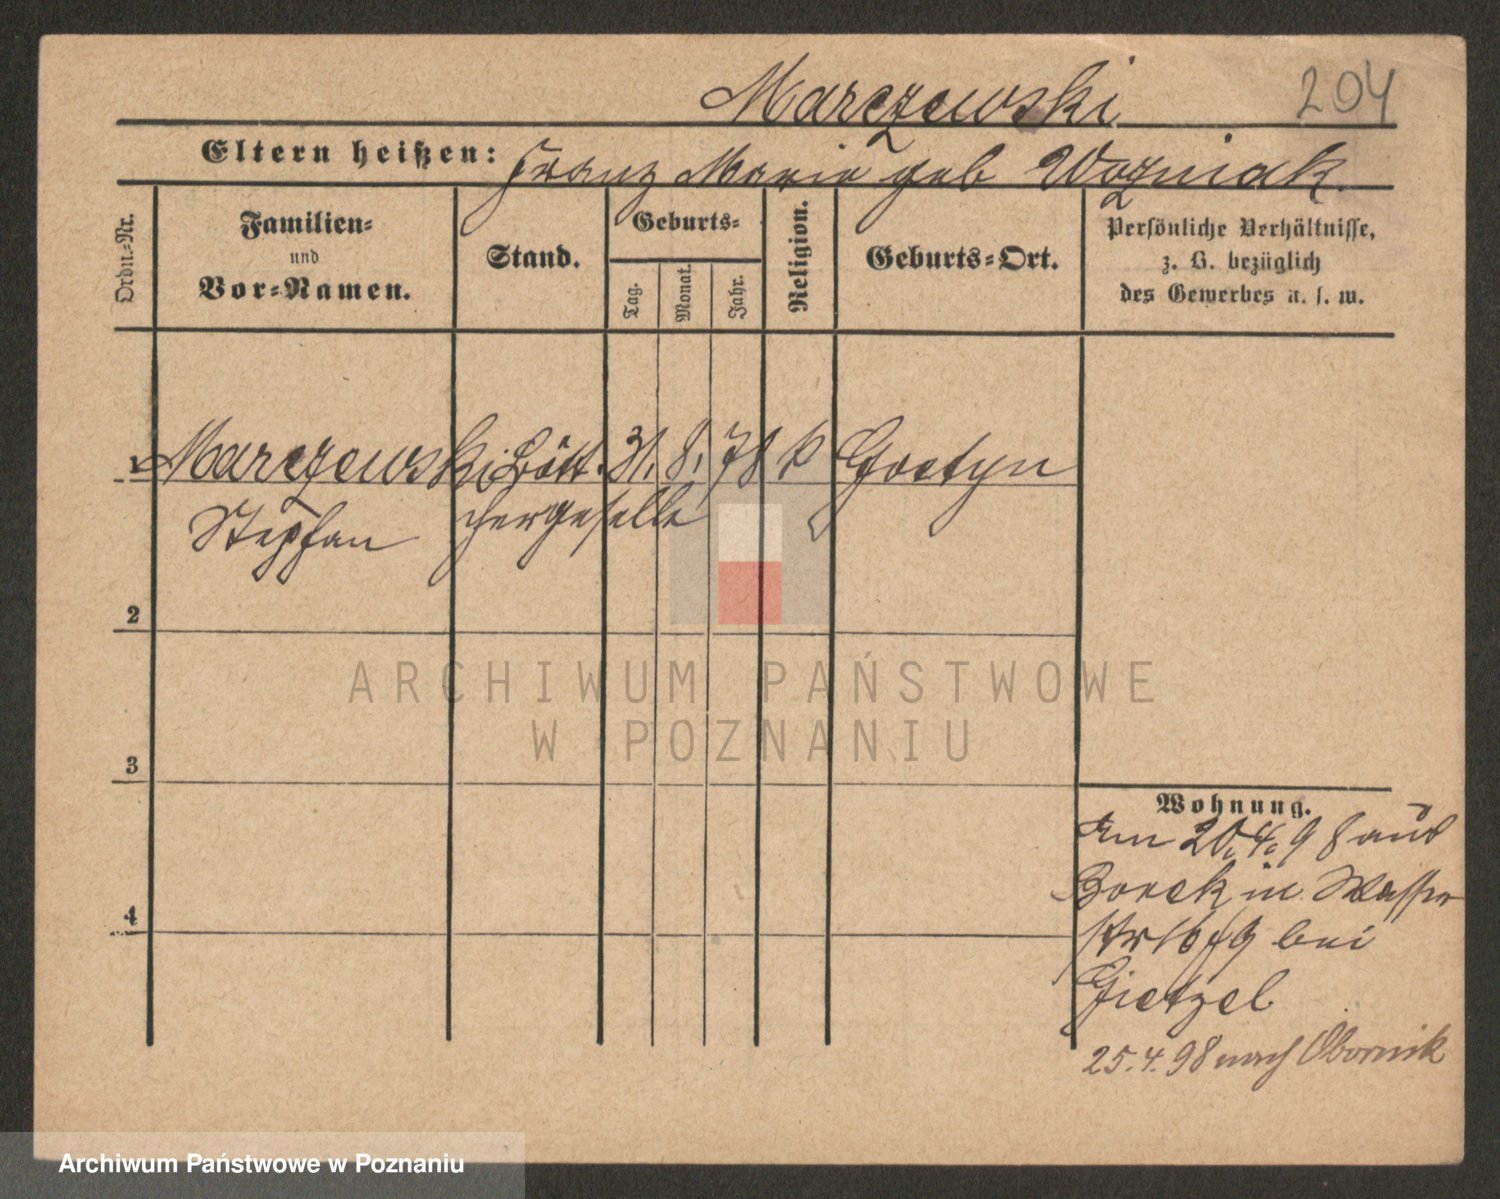 Marczewski
204
Eltern heißen: Franz Marie geb Wozniak.
Ordn.-Nr.
Familien-
und
Vor-Namen.
Stand.
Geburts-
Tag.
Monat.
Jahr.
Religion.
Geburts-Ort.
Persönliche Verhältnisse,
z. B. bezüglich
des Gewerbes u. s. w.
1 Marczewski Bött. 31. 8. 78 k Gostyn
Stephan chergeselle
2
3
4
ARCHIWUM PAŃSTWOWE
W POZNANIU
Wohnung.
Am 20.4.98 aus
Borek in Wasser
str bei
Gietzel
25.4.98 nach Obornik
Archiwum Państwowe w Poznaniu